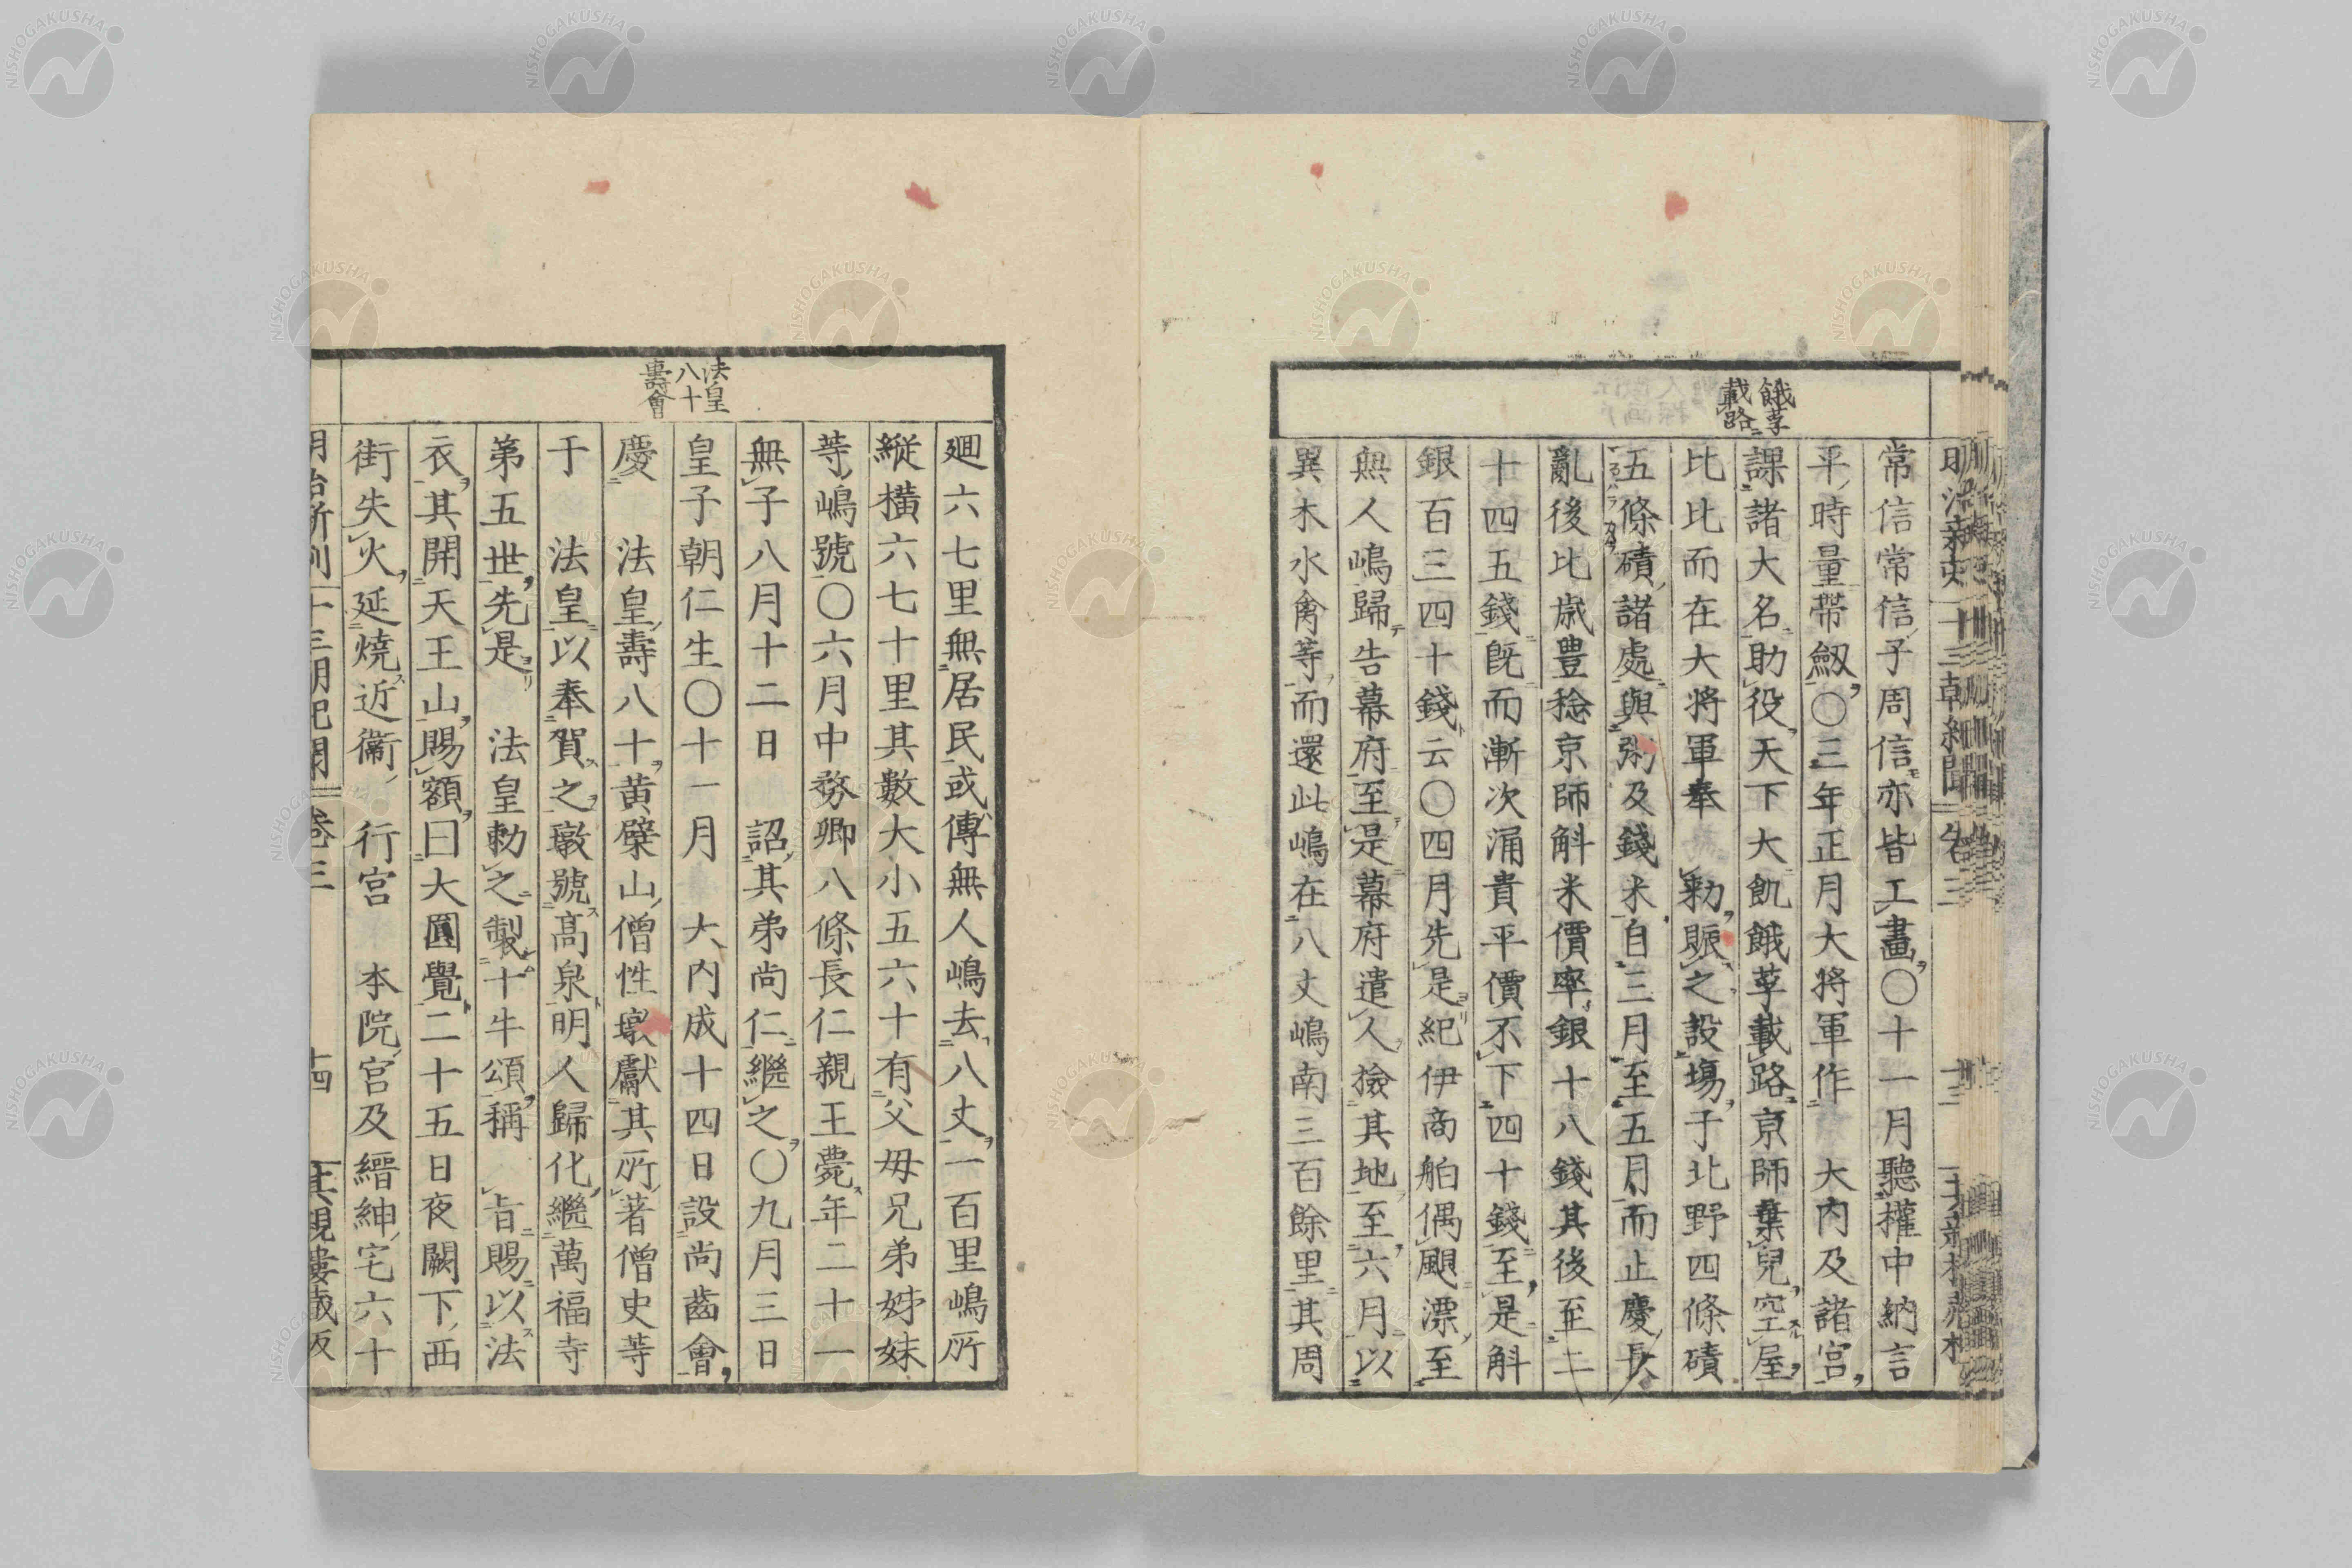 餓莩
載路
常信常信子周信亦皆工畫〇十一月聽權中納言
平時量帶劔〇三年正月大將軍作　大内及諸宮
課諸大名助役天下大飢餓莩載路京師棄兒空屋
比比而在大將軍奉　勅賑之設塲于北野四條磧
五條磧諸處與粥及錢米自三月至五月而止慶長
亂後比歲豊稔京師斛米價率銀十八錢其後至二
十四五錢既而漸次涌貴平價不下四十錢至是斛
銀百三四十錢云〇四月先是紀伊商舶偶颶漂至
無人嶋歸告幕府至是幕府遣人撿其地至六月以
異木水禽等而還此嶋在八丈嶋南三百餘里其周
廻六七里無居民或傳無人嶋去八丈一百里嶋所
縱橫六七十里其數大小五六十有父母兄弟姊妹
等嶋號〇六月中務卿八條長仁親王薨年二十一
無子八月十二日　詔其弟尚仁繼之〇九月三日
皇子朝仁生〇十一月　大内成十四日設尚齒會
慶　法皇壽八十黄檗山僧性墩獻其所著僧史等
于　法皇以奉賀之墩號高泉明人歸化繼萬福寺
第五世先是　法皇勅之製十牛頌稱　旨賜以法
衣其開天王山賜額曰大圓覺二十五日夜闕下西
街失火延燒近衞　行宮　本院宮及縉紳宅六十
法皇
八十
壽會
十三朝紀聞　卷三　十四